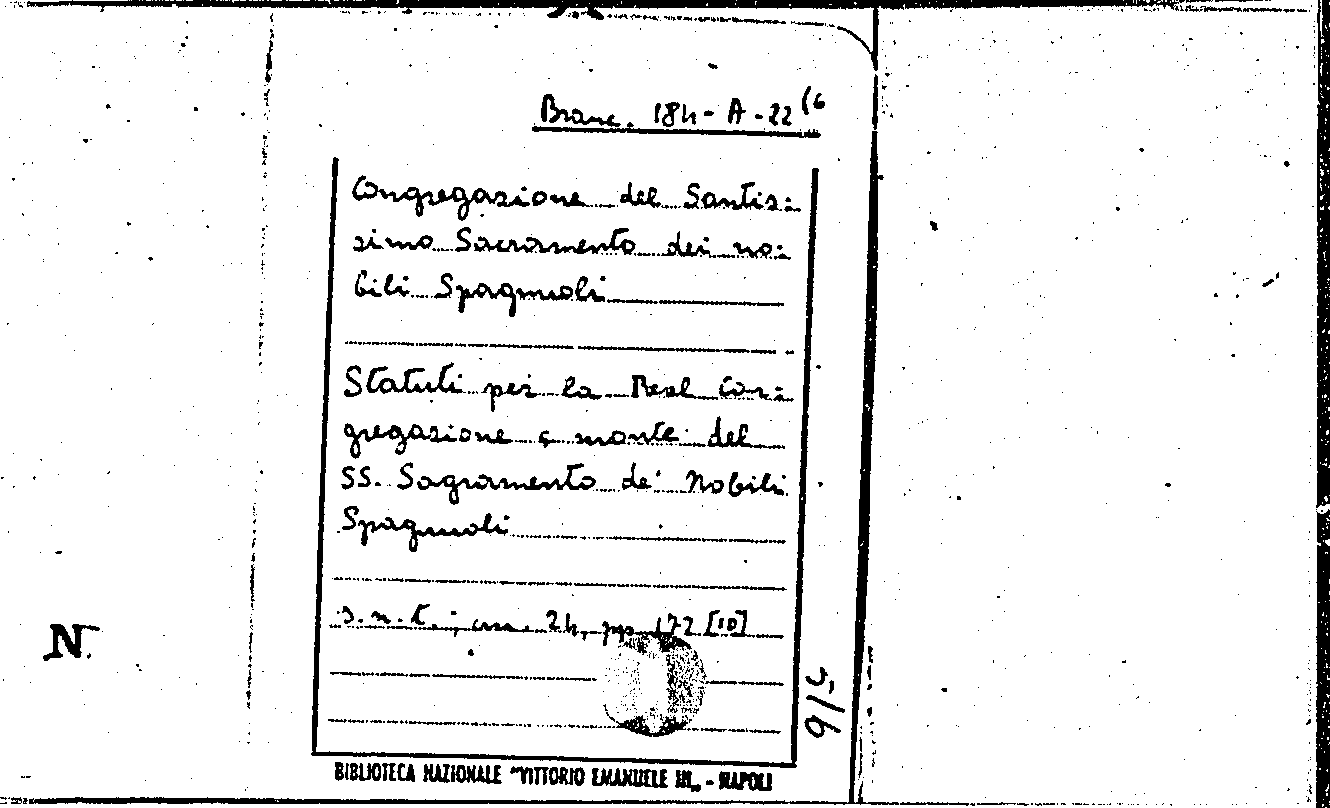 Branc. 184-A-22(6
Congregazione del Santis:
simo Sacramento dei no:
bili Spagnuoli
Statuti per la Real Con:
gregazione e monte del
SS. Sagramento de' Nobili
Spagnuoli
s.n.t.; cm. 24, pp. 172 [10]
N.
BIBLIOTECA NAZIONALE "VITTORIO EMANUELE III" - NAPOLI